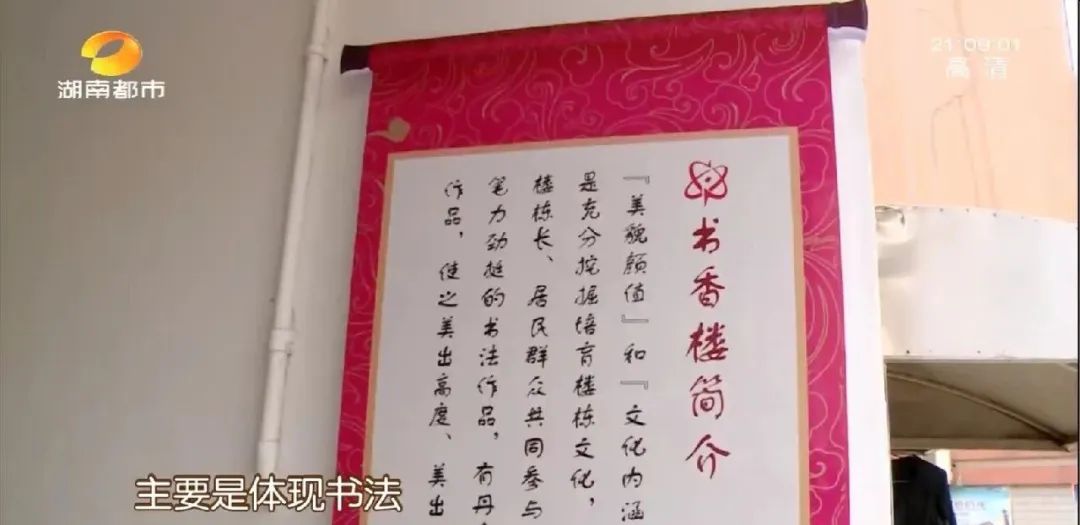 湖南都市
21:09:01
高清
书香楼简介
『美貌颜值』和『文化内涵
是充分挖掘培育楼栋文化，
楼栋长、居民群众共同参与
笔力劲挺的书法作品，有丹
作品，使之美出高度、美出
主要是体现书法